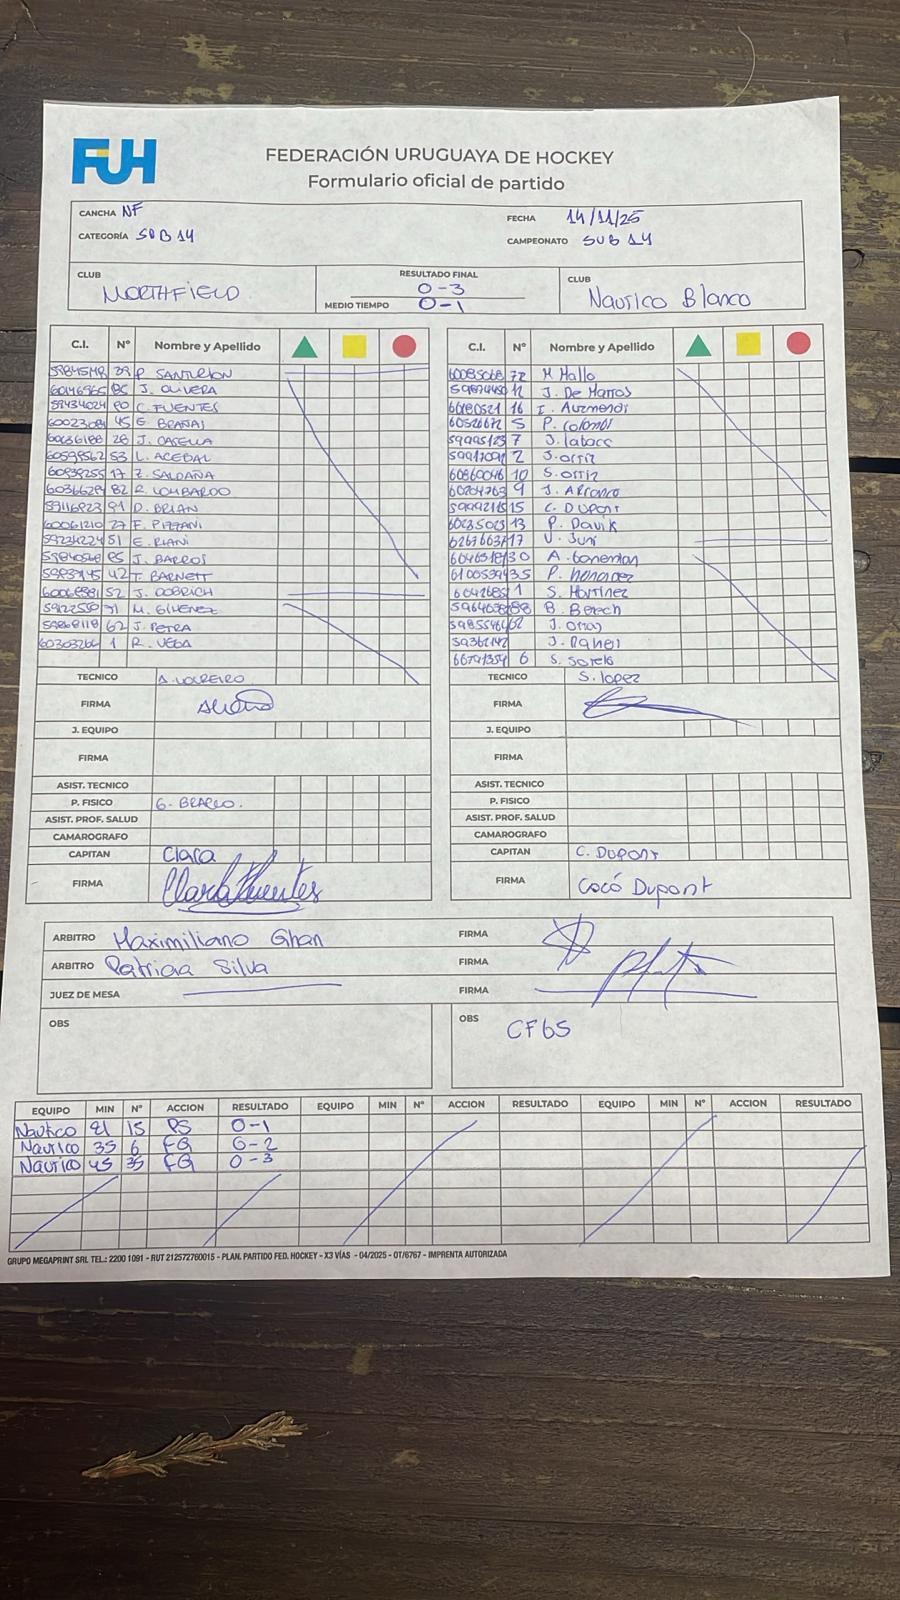 FUH
FEDERACIÓN URUGUAYA DE HOCKEY
Formulario oficial de partido
CANCHA NF FECHA 14/11/25
CATEGORÍA SUB 14 CAMPEONATO SUB 14
CLUB NORTHFIELD
RESULTADO FINAL 0-3
MEDIO TIEMPO 0-1
CLUB Nautico Blanco
C.I. Nº Nombre y Apellido
P. SANTURION
J. OLIVERA
59434024 C. FUENTES
45 E. BRAÑAS
60636188 28 J. CASELLA
60598562 53 L. ACEBAL
60839255 17 Z. SALDAÑA
82 R. LOMBARDO
59116823 91 D. BRIAN
60061210 27 F. PIZZANI
59234224 51 E. RIANI
85 J. BARROS
42 T. BARNETT
52 J. DOBRICH
M. GIMENEZ
62 J. PETRA
60303266 1 R. VEGA
TECNICO A. LOUREIRO
FIRMA
J. EQUIPO
FIRMA
ASIST. TECNICO
P. FISICO G. BRACCO.
ASIST. PROF. SALUD
CAMAROGRAFO
CAPITAN Clara
FIRMA Clara Fuentes
C.I. Nº Nombre y Apellido
60085068 72 M Mallo
12 J. De Marros
60180521 16 I. Auzmendi
60526672 5 P. Colombi
59995123 7 J. labacc
2 J. ortiz
60860046 10 S. ortiz
60704763 9 J. Arronco
15 C. DUPONT
60235023 13 P. Davik
17 V. Juni
30 A. bonemon
35 P. hernandez
1 S. Martinez
88 B. Berech
62 J. Omas
J. Daners
6 S. Sorelo
TECNICO S. lopez
FIRMA
J. EQUIPO
FIRMA
ASIST. TECNICO
P. FISICO
ASIST. PROF. SALUD
CAMAROGRAFO
CAPITAN C. DUPONT
FIRMA Cocó Dupont
ARBITRO Maximiliano Ghan FIRMA
ARBITRO Patricia Silva FIRMA
JUEZ DE MESA FIRMA
OBS
OBS CF65
EQUIPO MIN Nº ACCION RESULTADO EQUIPO MIN Nº ACCION RESULTADO EQUIPO MIN Nº ACCION RESULTADO
Nautico 21 15 PS 0-1
Nautico 35 6 FG 0-2
Nautico 45 35 FG 0-3
GRUPO MEGAPRINT SRL TEL.: 2200 1091 - RUT 212572760015 - PLAN. PARTIDO FED. HOCKEY - X3 VÍAS - 04/2025 - OT/6767 - IMPRENTA AUTORIZADA